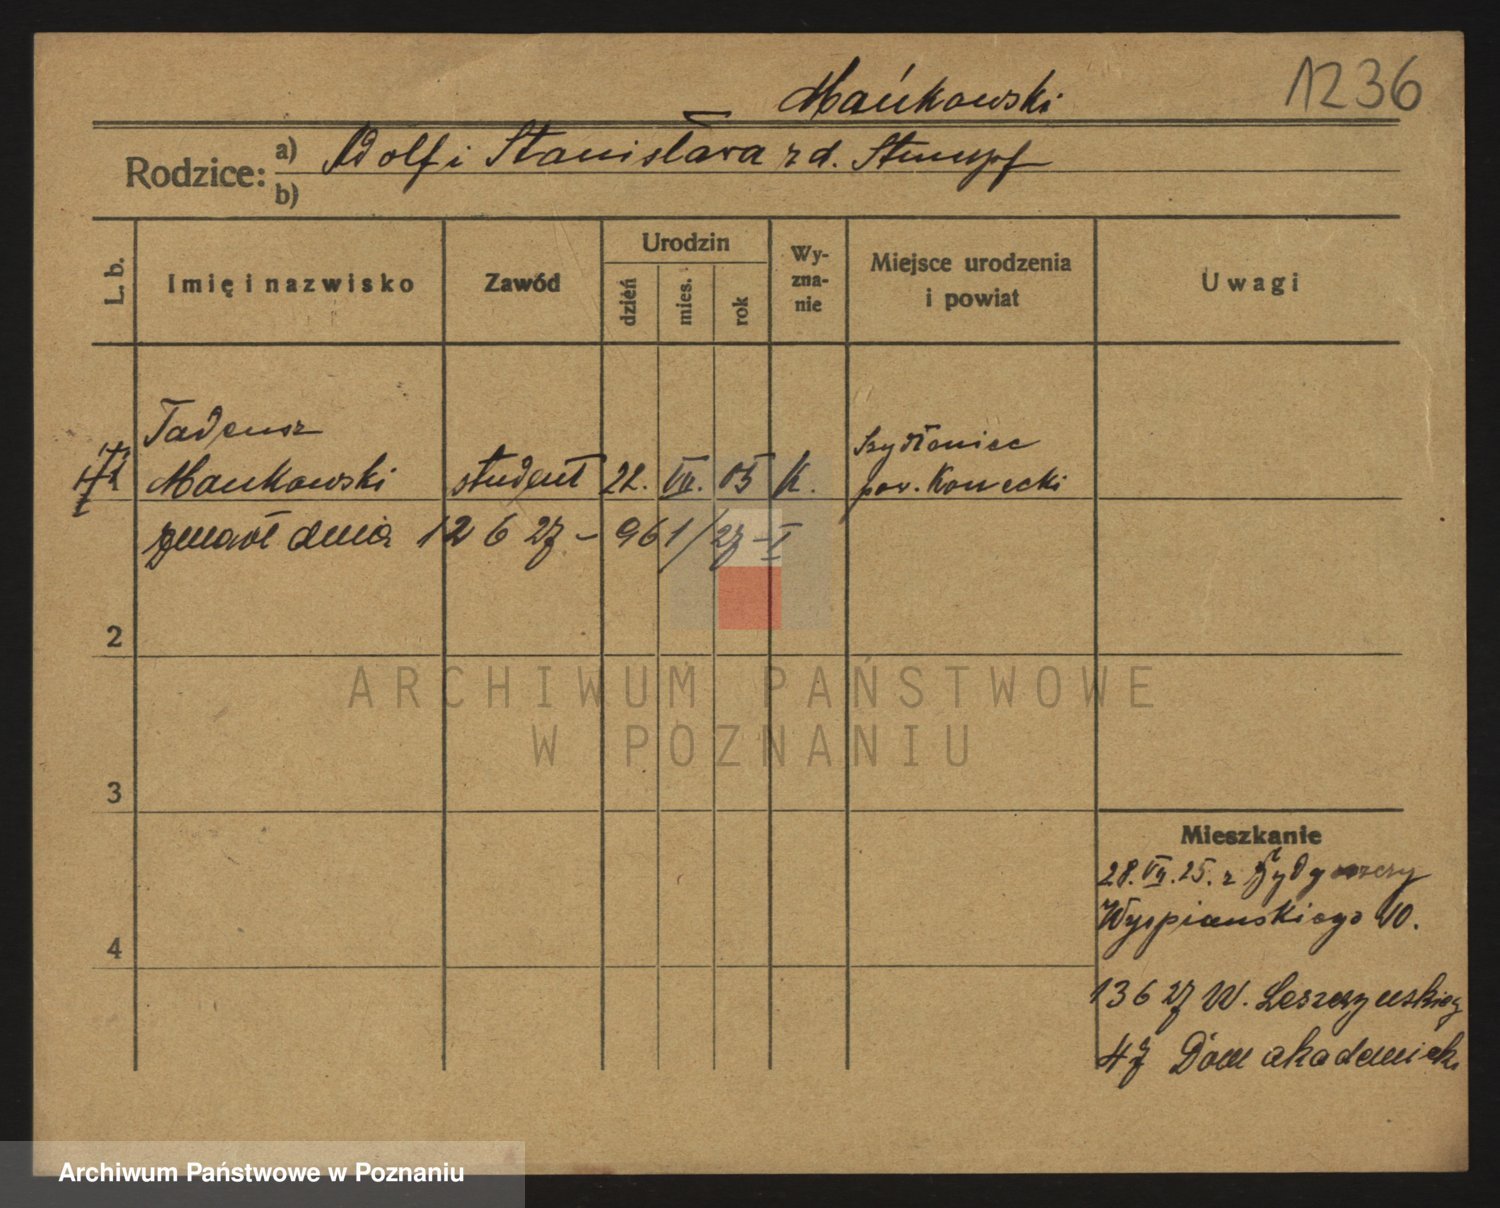 1236
Mańkowski
Rodzice: a) Adolf i Stanisława z d. Stumpf
b)
L. b.
Imię i nazwisko
Zawód
Urodzin
dzień
mies.
rok
Wy-
zna-
nie
Miejsce urodzenia
i powiat
Uwagi
Tadeusz
Mankowski student 22. VII. 05 K.
Szydłowiec
pow. Konecki
zmarł dnia 12 6 27 – 961/27 – I
2
3
4
ARCHIWUM PAŃSTWOWE
W POZNANIU
Mieszkanie
28. VII. 25. z Bydgoszczy
Wyspianskiego 10.
13 6 27 W. Leszczyńskiej
47 Dom akademicki
Archiwum Państwowe w Poznaniu